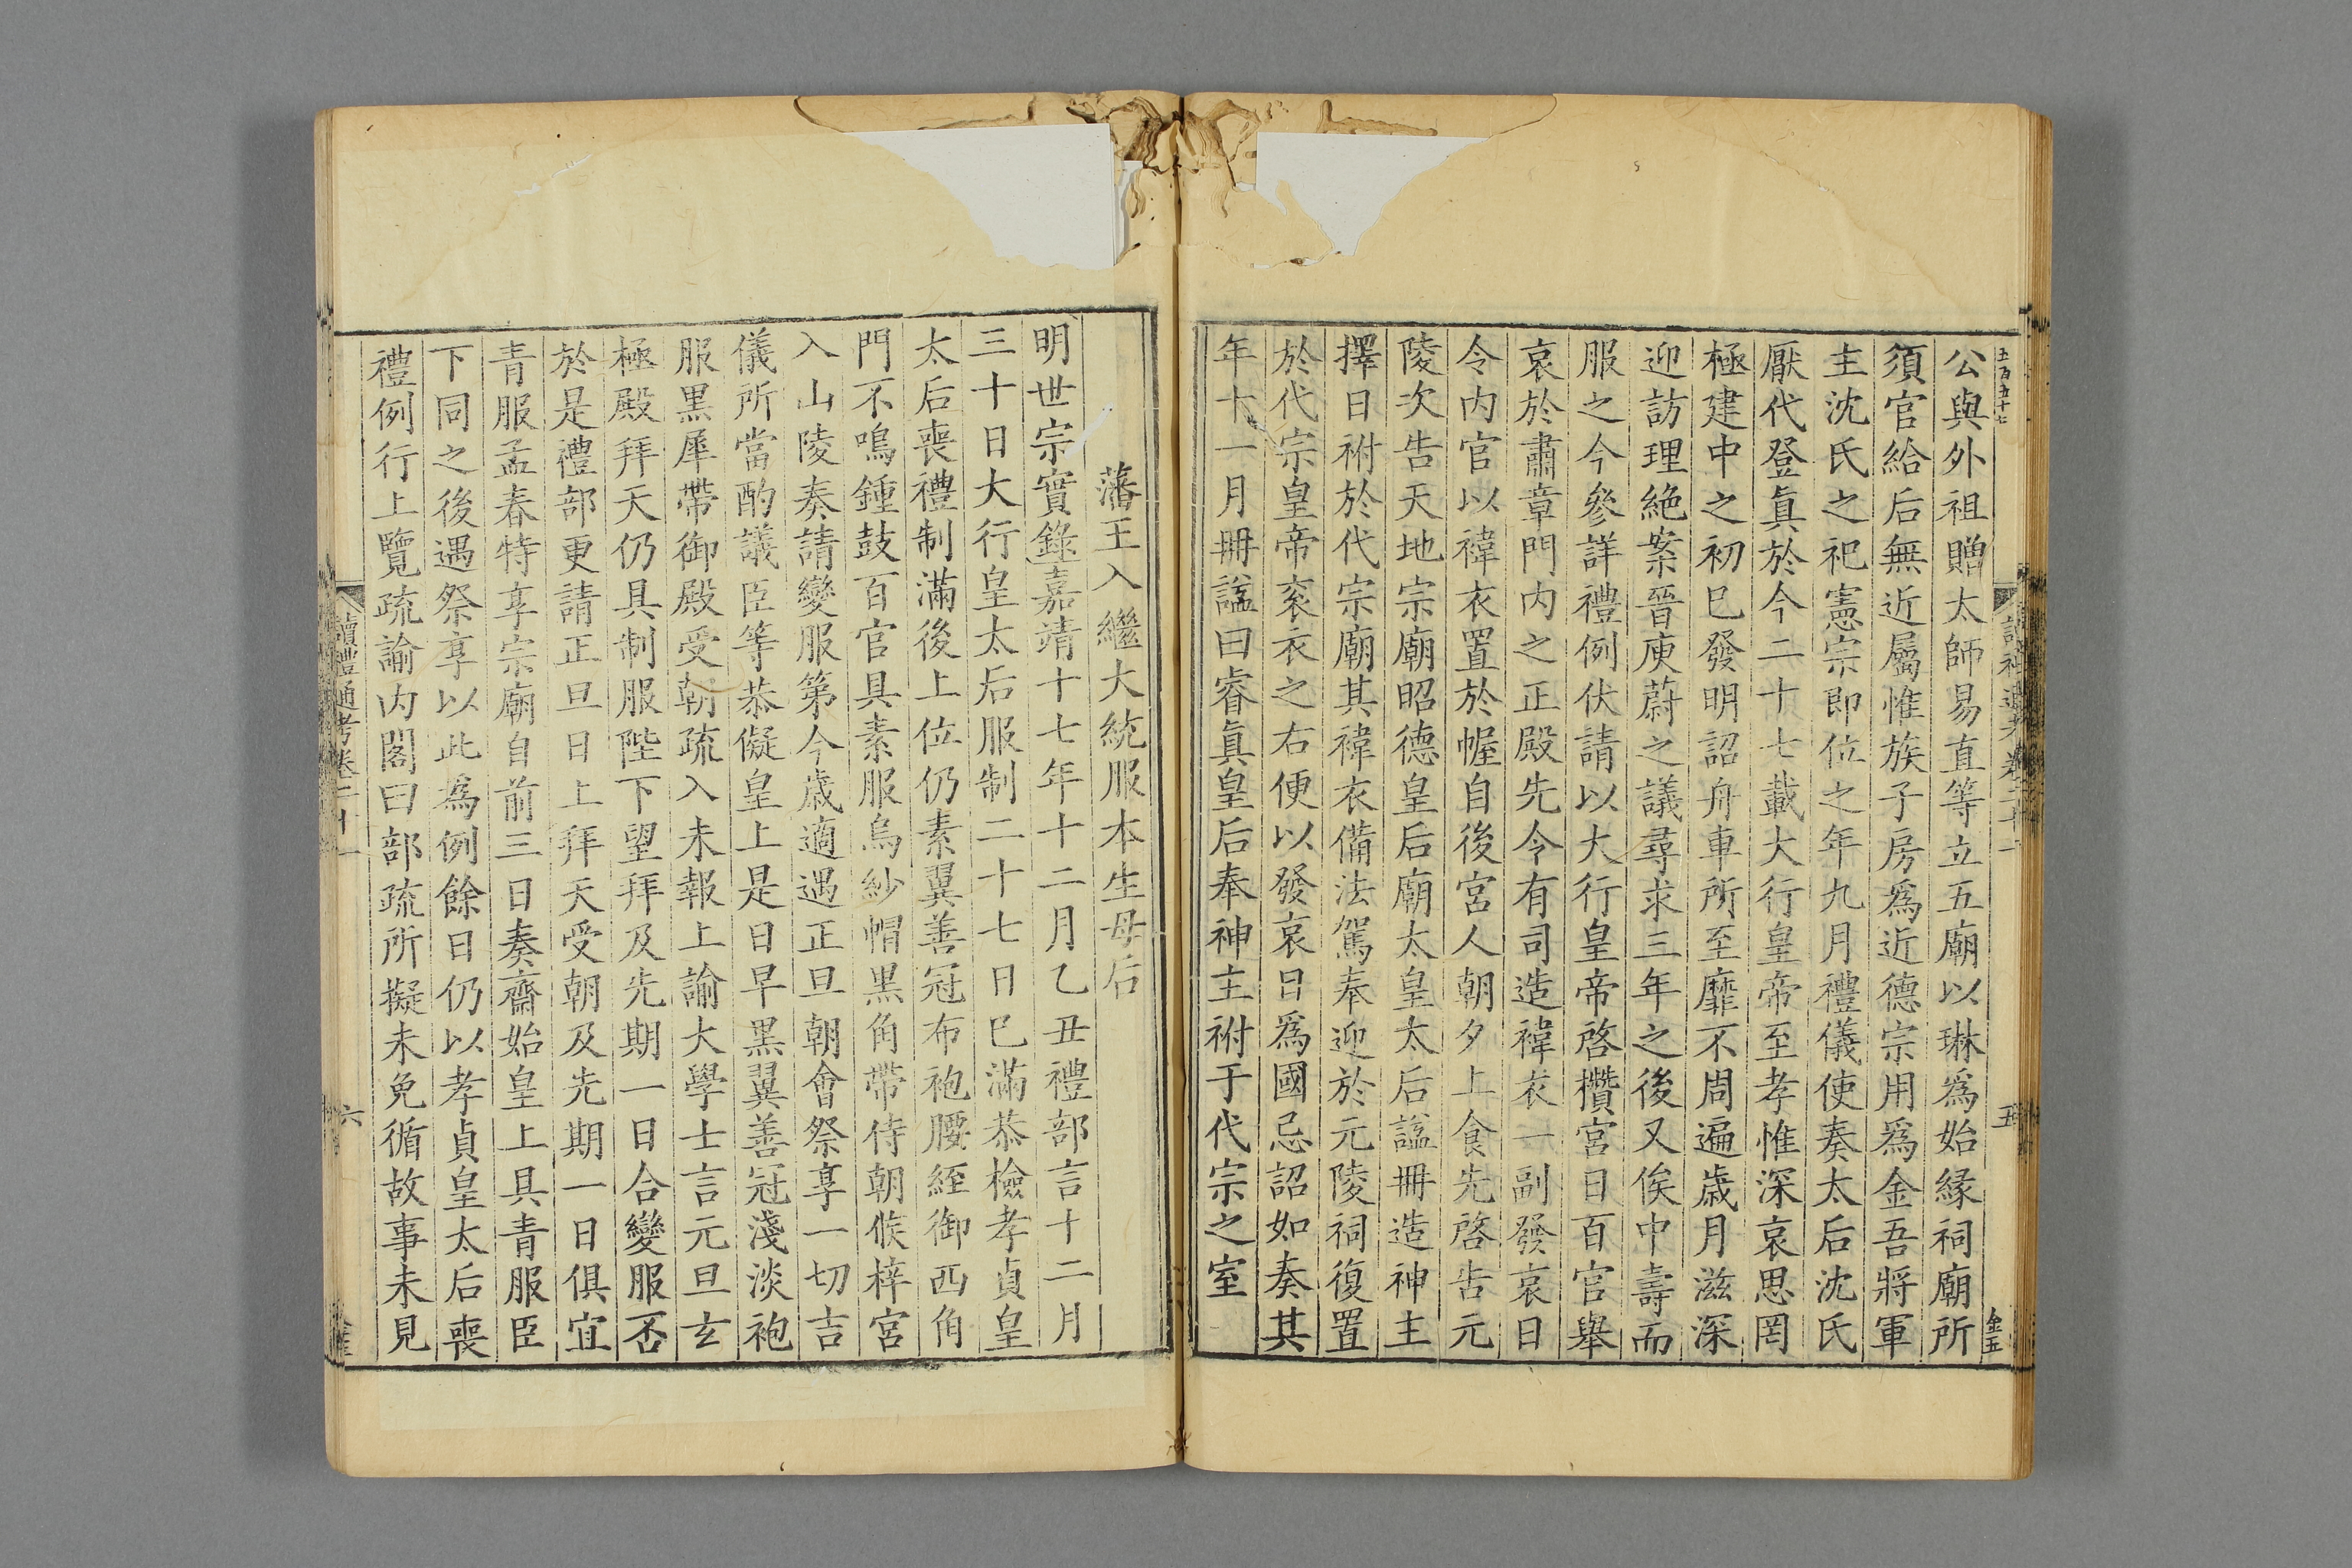 五百五十七
公與外祖贈太師易直等立五廟以琳爲始緣祠廟所
須官給后無近屬惟族子房爲近德宗用爲金吾將軍
主沈氏之祀憲宗即位之年九月禮儀使奏太后沈氏
厭代登眞於今二十七載大行皇帝至孝惟深哀思罔
極建中之初已發明詔舟車所至靡不周遍歲月滋深
迎訪理絶案晉庾蔚之議尋求三年之後又俟中壽而
服之今參詳禮例伏請以大行皇帝啓欑宮日百官舉
哀於肅章門内之正殿先令有司造褘衣一副發哀日
令内官以褘衣置於幄自後宮人朝夕上食先啓告元
陵次告天地宗廟昭德皇后廟太皇太后諡冊造神主
擇日祔於代宗廟其褘衣備法駕奉迎於元陵祠復置
於代宗皇帝衮衣之右便以發哀日爲國忌詔如奏其
年十一月冊諡曰睿眞皇后奉神主祔于代宗之室
藩王入繼大統服本生母后
明世宗實錄嘉靖十七年十二月乙丑禮部言十二月
三十日大行皇太后服制二十七日已滿恭檢孝貞皇
太后喪禮制滿後上位仍素翼善冠布袍腰絰御西角
門不鳴鍾鼓百官具素服烏紗帽黑角帶侍朝候梓宮
入山陵奏請變服第今歲適遇正旦朝會祭享一切吉
儀所當酌議臣等恭儗皇上是日早黑翼善冠淺淡袍
服黑犀帶御殿受朝疏入未報上諭大學士言元旦玄
極殿拜天仍具制服陛下望拜及先期一日合變服否
於是禮部更請正旦日上拜天受朝及先期一日俱宜
青服孟春特享宗廟自前三日奏齋始皇上具青服臣
下同之後遇祭享以此爲例餘日仍以孝貞皇太后喪
禮例行上覽疏諭内閣曰部疏所擬未免循故事未見
讀禮通考卷二十一
六